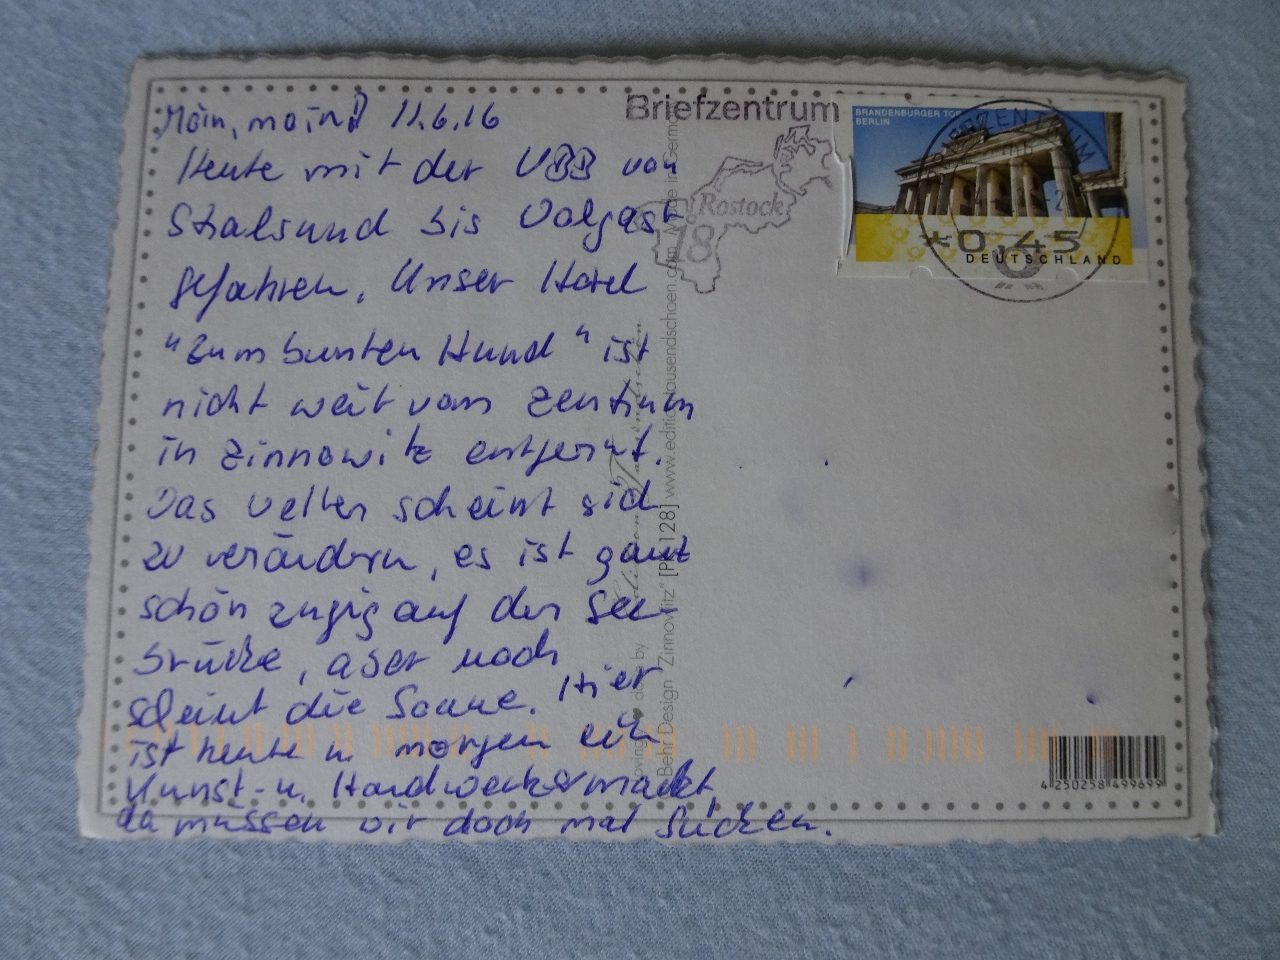 Moin, moin! 11.6.16
Heute mit der UBB von
Stralsund bis Wolgast
gefahren. Unser Hotel
"Zum bunten Hund" ist
nicht weit vom Zentrum
in Zinnowitz entfernt.
Das Wetter scheint sich
zu verändern, es ist ganz
schön zugig auf der See-
brücke, aber noch
scheint die Sonne. Hier
ist heute u. morgen ein
Kunst- u. Handwerkermarkt,
da müssen wir doch mal gucken.
Briefzentrum
Rostock
18
BRANDENBURGER TOR
BERLIN
*0,45
DEUTSCHLAND
BRIEFZENTRUM
Behr Design "Zinnowitz" [PK 128] www.editiontausendschoen.com Made in Germany
4 250258 499699